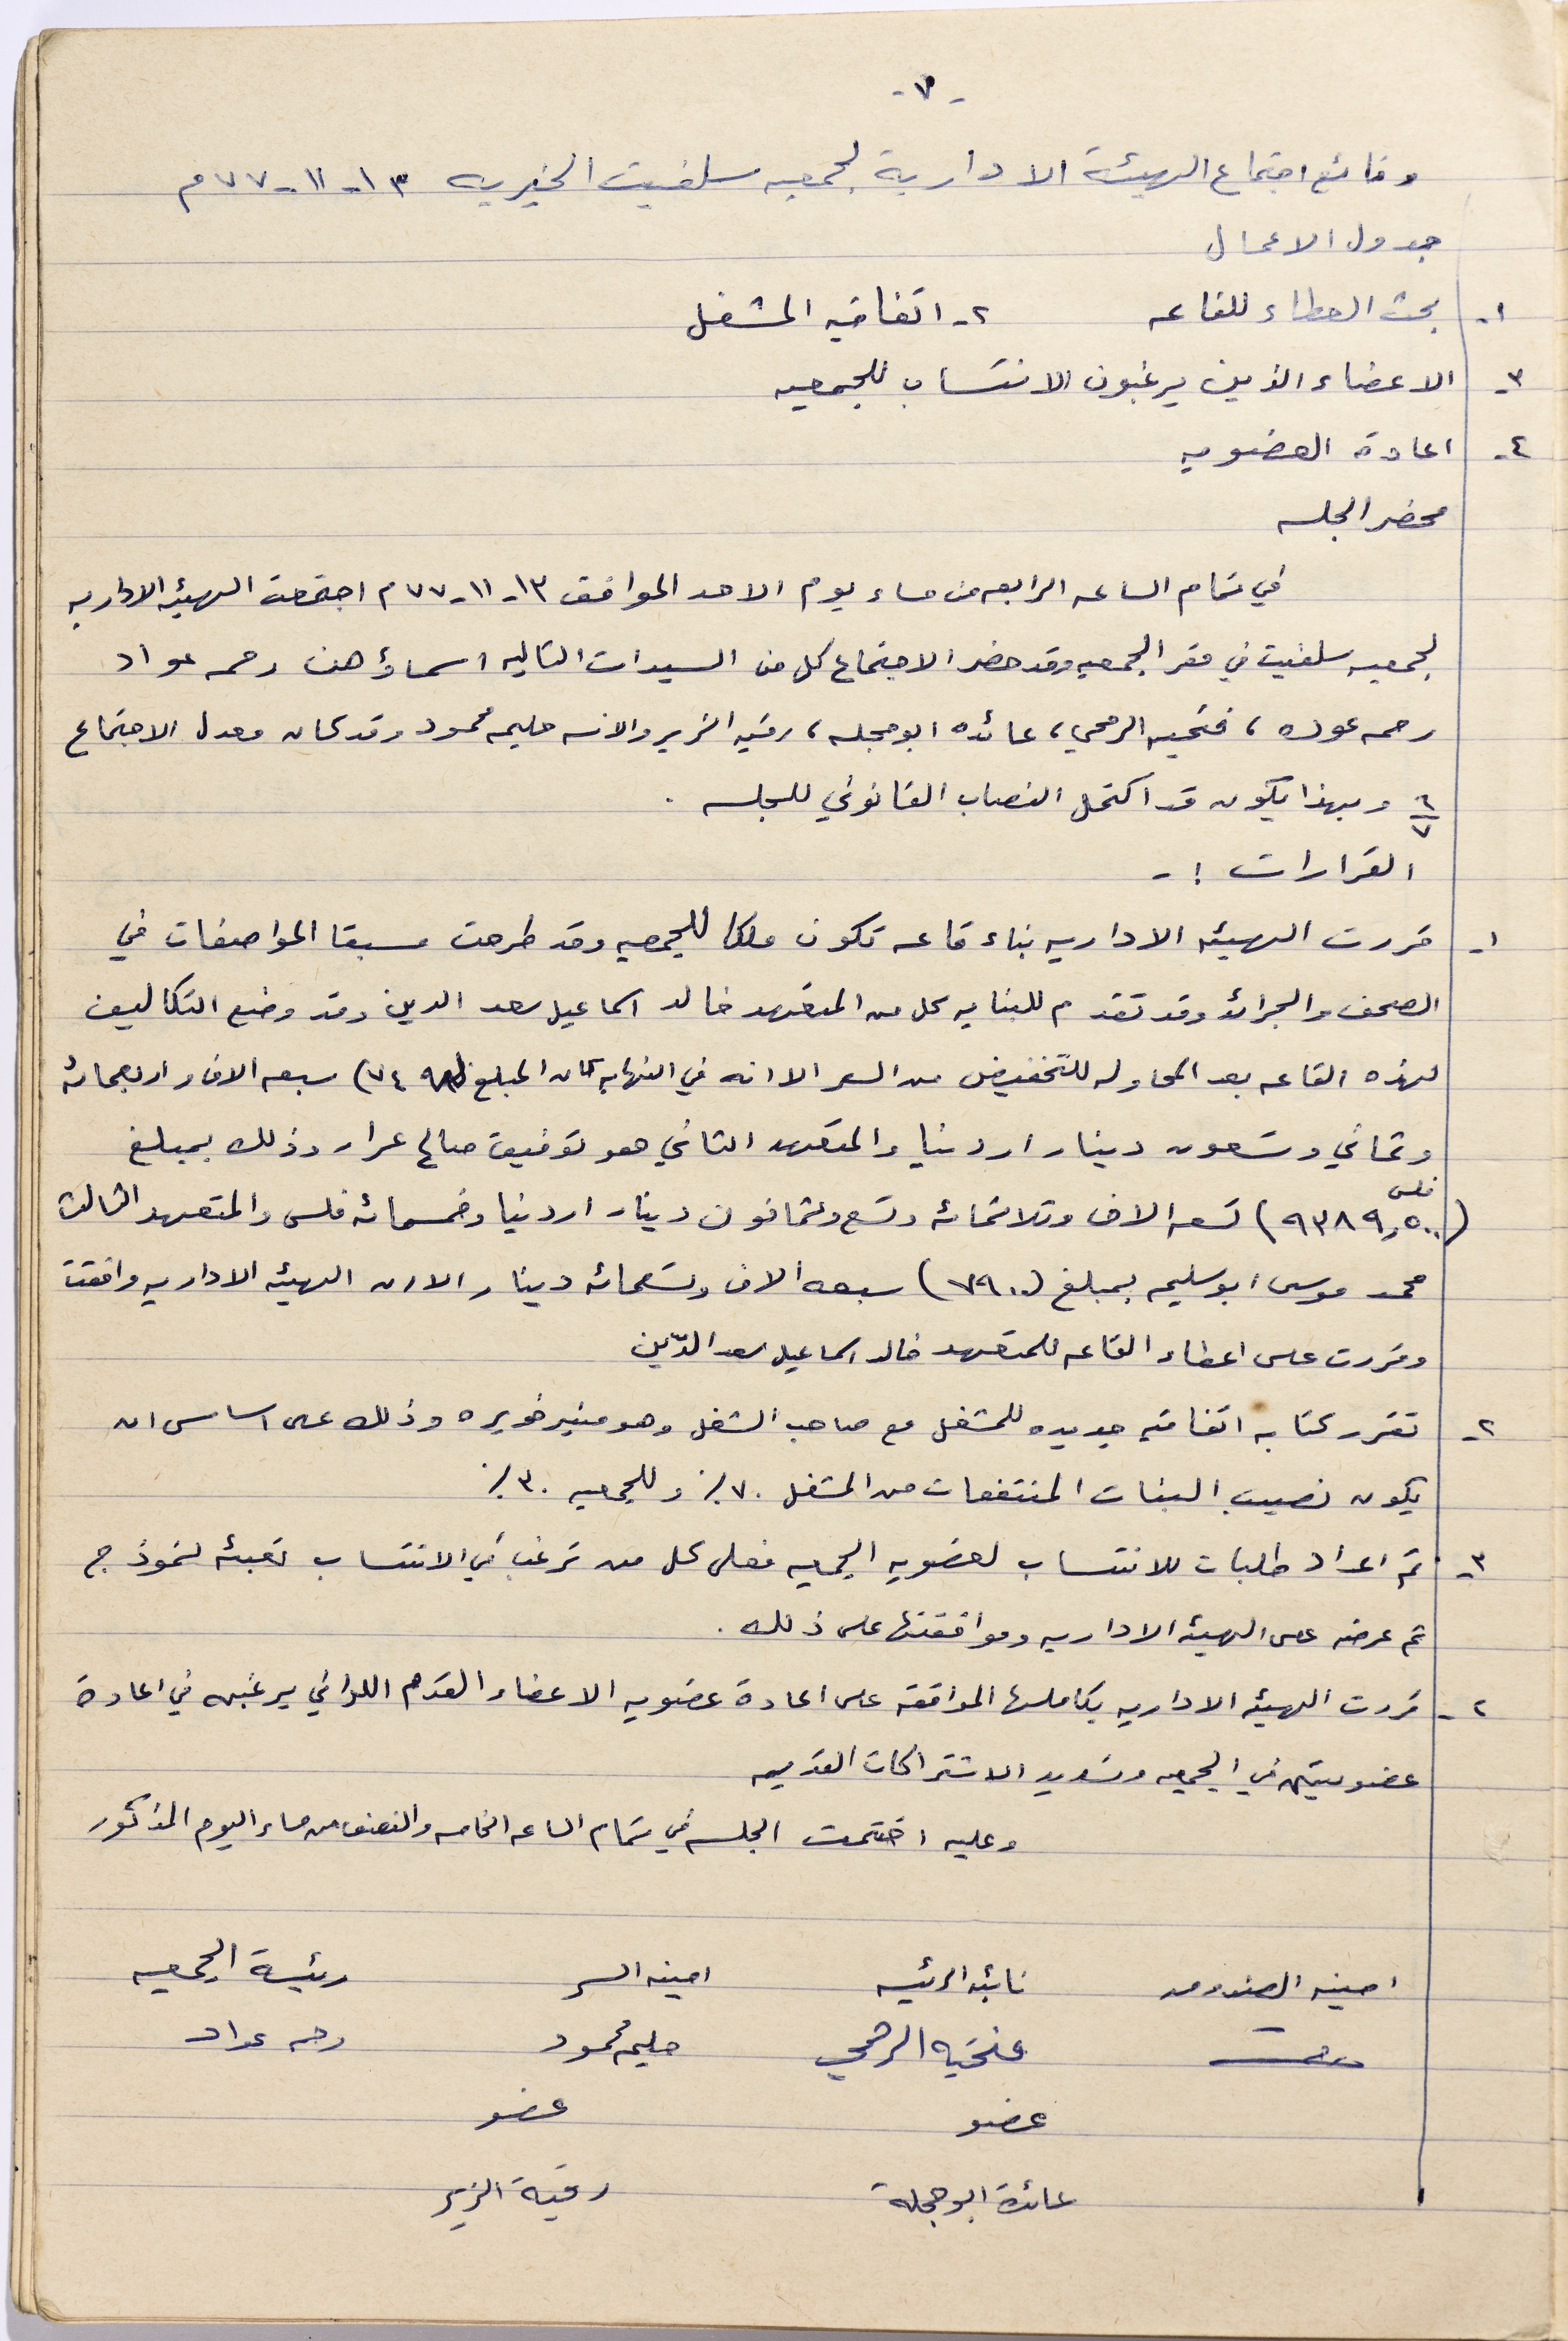 -٧-
وقائع اجتماع الهيئة الادارية لجمعيه سلفيت الخيريه ١٣-١١-٧٧م
جدول الاعمال
١- بحث العطاء للقاعه ٢- اتفاقيه المشغل
٣- الاعضاء الذين يرغبون الانتساب للجمعيه
٤- اعادة العضويه
محضر الجلسه
في تمام الساعه الرابعه من مساء يوم الاحد الموافق ١٣-١١-٧٧م اجتمعت الهيئه الاداريه
لجمعيه سلفيت في مقر الجمعيه وقد حضر الاجتماع كل من السيدات التاليه اسماؤهن رحمه عواد
رحمه عوده ، فتحيه الرمحي ، عائده ابو حجله ، رقيه الزير والانسه حليمه محمود وقد كان معدل الاجتماع
٦/٧ وبهذا يكون قد اكتمل النصاب القانوني للجلسه .
القرارات :-
١- قررت الهيئه الاداريه بناء قاعه تكون ملكا للجمعيه وقد طرحت مسبقا المواصفات في
الصحف والجرائد وقد تقدم للبنايه كل من المتعهد خالد اسماعيل سعد الدين وقد وضع التكاليف
لهذه القاعه بعد المحاوله للتخفيض من السعر الا انه في النهايه كان المبلغ (٧٤٩٨) سبعه الاف واربعمائه
وثماني وتسعون دينار اردنيا والمتعهد الثاني هو توفيق صالح عرار وذلك بمبلغ
(٩٣٨٩,٥٠٠ فلس) تسعه الاف وثلاثمائه وتسع وثمانون دينار اردنيا وخمسمائه فلس والمتعهد الثالث
محمد موسى ابو سليمه بمبلغ (٧٩٠٠) سبعه الاف وتسعمائه دينار الا ان الهيئه الاداريه وافقت
وقررت على اعطاء القاعه للمتعهد خالد اسماعيل سعد الدّين
٢- تقرر كتابه اتفاقيه جديده للمشغل مع صاحب الشغل وهو منير خويره وذلك على اساس ان
يكون نصيب البنات المنتفعات من المشغل ٧٠٪ وللجمعيه ٣٠٪
٣- تم اعداد طلبات للانتساب لعضويه الجمعيه فعلى كل من ترغب في الانتساب تعبئه نموذج
تم عرضه على الهيئه الاداريه وموافقتها على ذلك .
٢- قررت الهيئه الاداريه بكاملها الموافقه على اعادة عضويه الاعضاء القدم اللواتي يرغبن في اعادة
عضويتهن في الجمعيه وتسديد الاشتراكات القديمه
وعليه اختتمت الجلسه في تمام الساعه الخامسه والنصف من مساء اليوم المذكور
امينه الصندوق نائبه الرئيسه امينه السر رئيسة الجمعيه
فتحيه الرمحي حليمه محمود رحمه عواد
عضو عضو
عائدة ابو حجلة رقية الزير